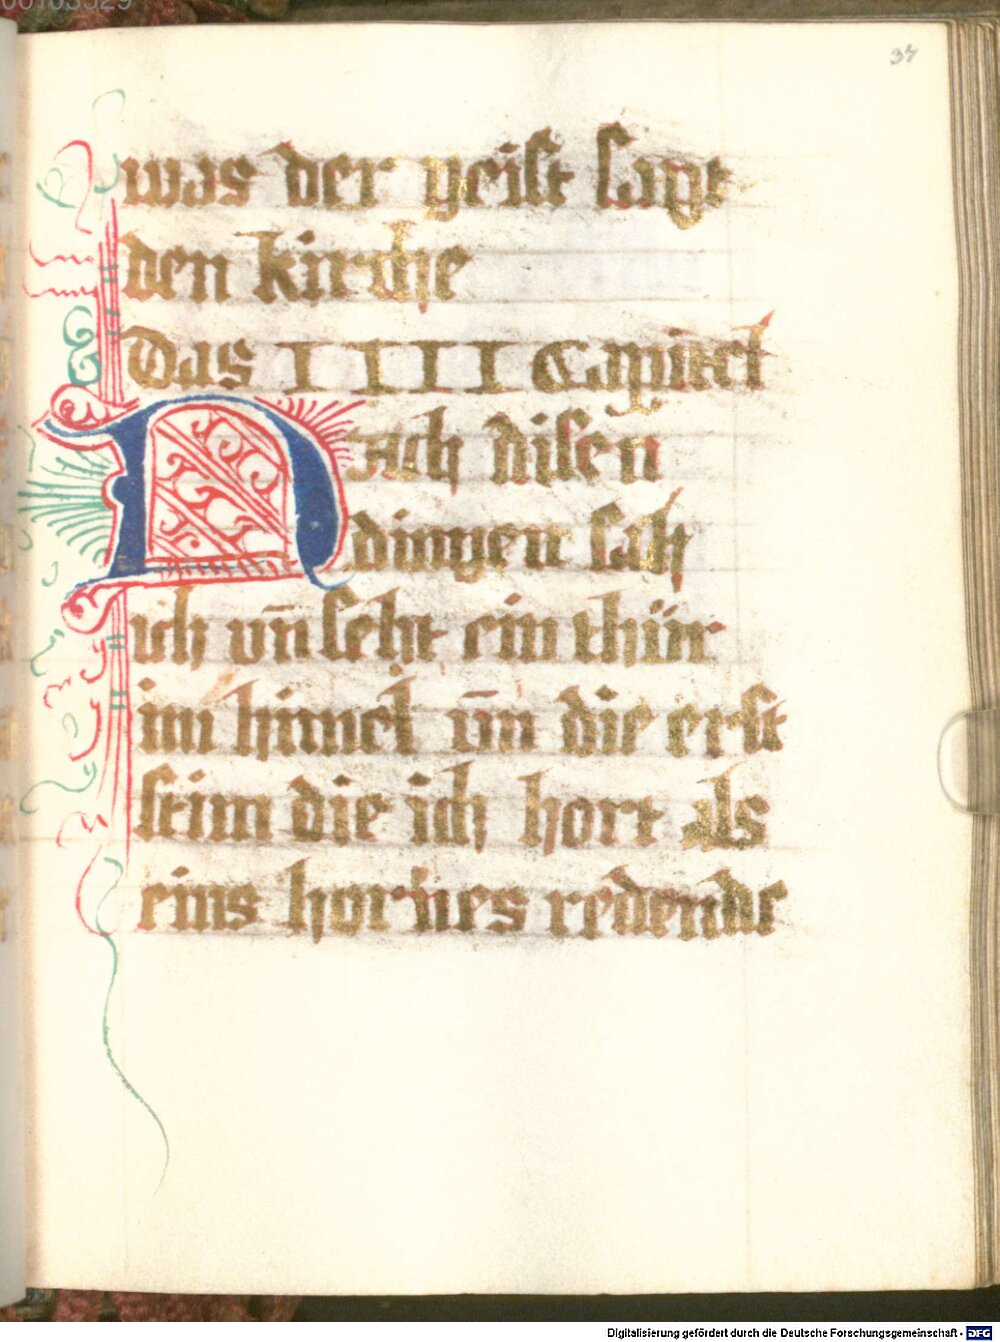 37
was der geist sagt
den kirche
Das IIII Capitel
Nach disen
dingen sah
ich vn̄ seht ein thür
im himel vn̄ die erst
stim die ich hort als
eins hornes redende
Digitalisierung gefördert durch die Deutsche Forschungsgemeinschaft - DFG